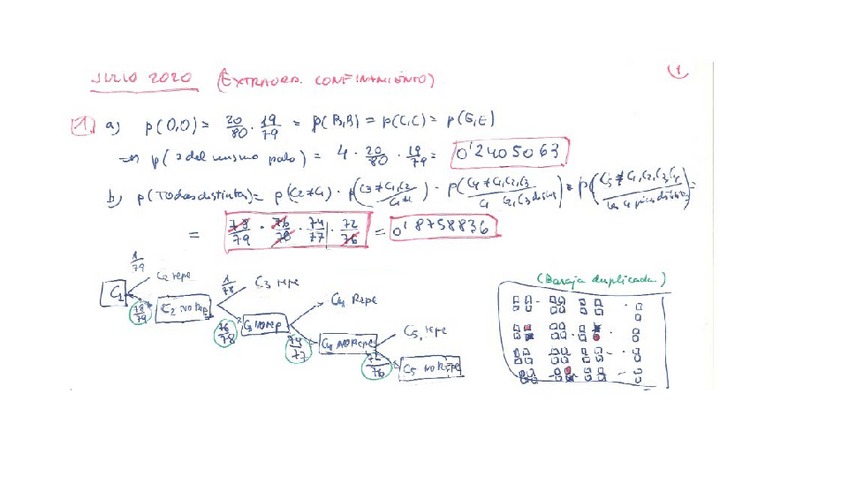 JULIO 2020 (EXTRAORD. CONFINAMIENTO) 1
1. a) p(O,O) = 20/80 · 19/79 = p(B,B) = p(C,C) = p(E,E)
⇒ p(2 del mismo palo) = 4 · 20/80 · 19/79 = 0'2405063
b) p(Todas distintas) = p(C2≠C1) · p(C3≠C1,C2/C1≠) · p(C4≠C1,C2,C3/C1 C2,C3 distint) · p(C5≠C1,C2,C3,C4/) =
= 78/79 · 76/78 · 74/77 · 72/76 = 0'8758836
1/79
C1 C2 repe
78/79 C2 no rep 1/78 C3 repe
76/78 C3 no rep C4 Repe
74/77 C4 no Repe C5 repe
72/76 C5 no Repe
(Baraja duplicada)